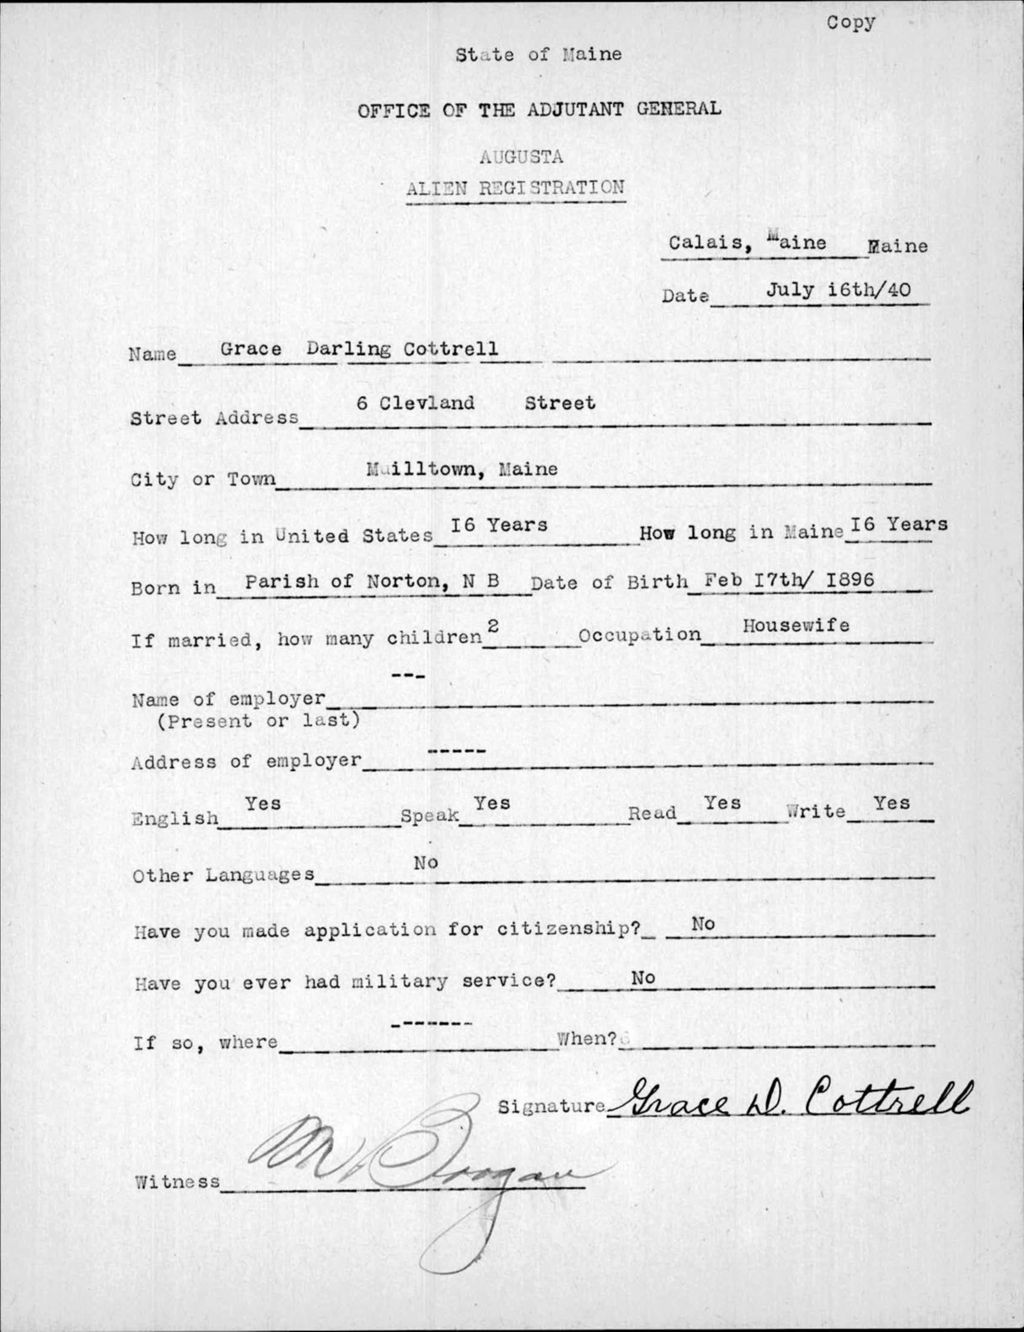 Copy
State of Maine
OFFICE OF THE ADJUTANT GENERAL
AUGUSTA
ALIEN REGISTRATION
Calais, Maine Maine
Date July i6th/40
Name Grace Darling Cottrell
Street Address 6 Clevland Street
City or Town Milltown, Maine
How long in United States I6 Years How long in Maine I6 Years
Born in Parish of Norton, N B Date of Birth Feb I7th/ I896
If married, how many children 2 Occupation Housewife
Name of employer ---
(Present or last)
Address of employer -----
English Yes Speak Yes Read Yes Write Yes
Other Languages No
Have you made application for citizenship? No
Have you ever had military service? No
If so, where ------- When?
Signature Grace D. Cottrell
Witness M